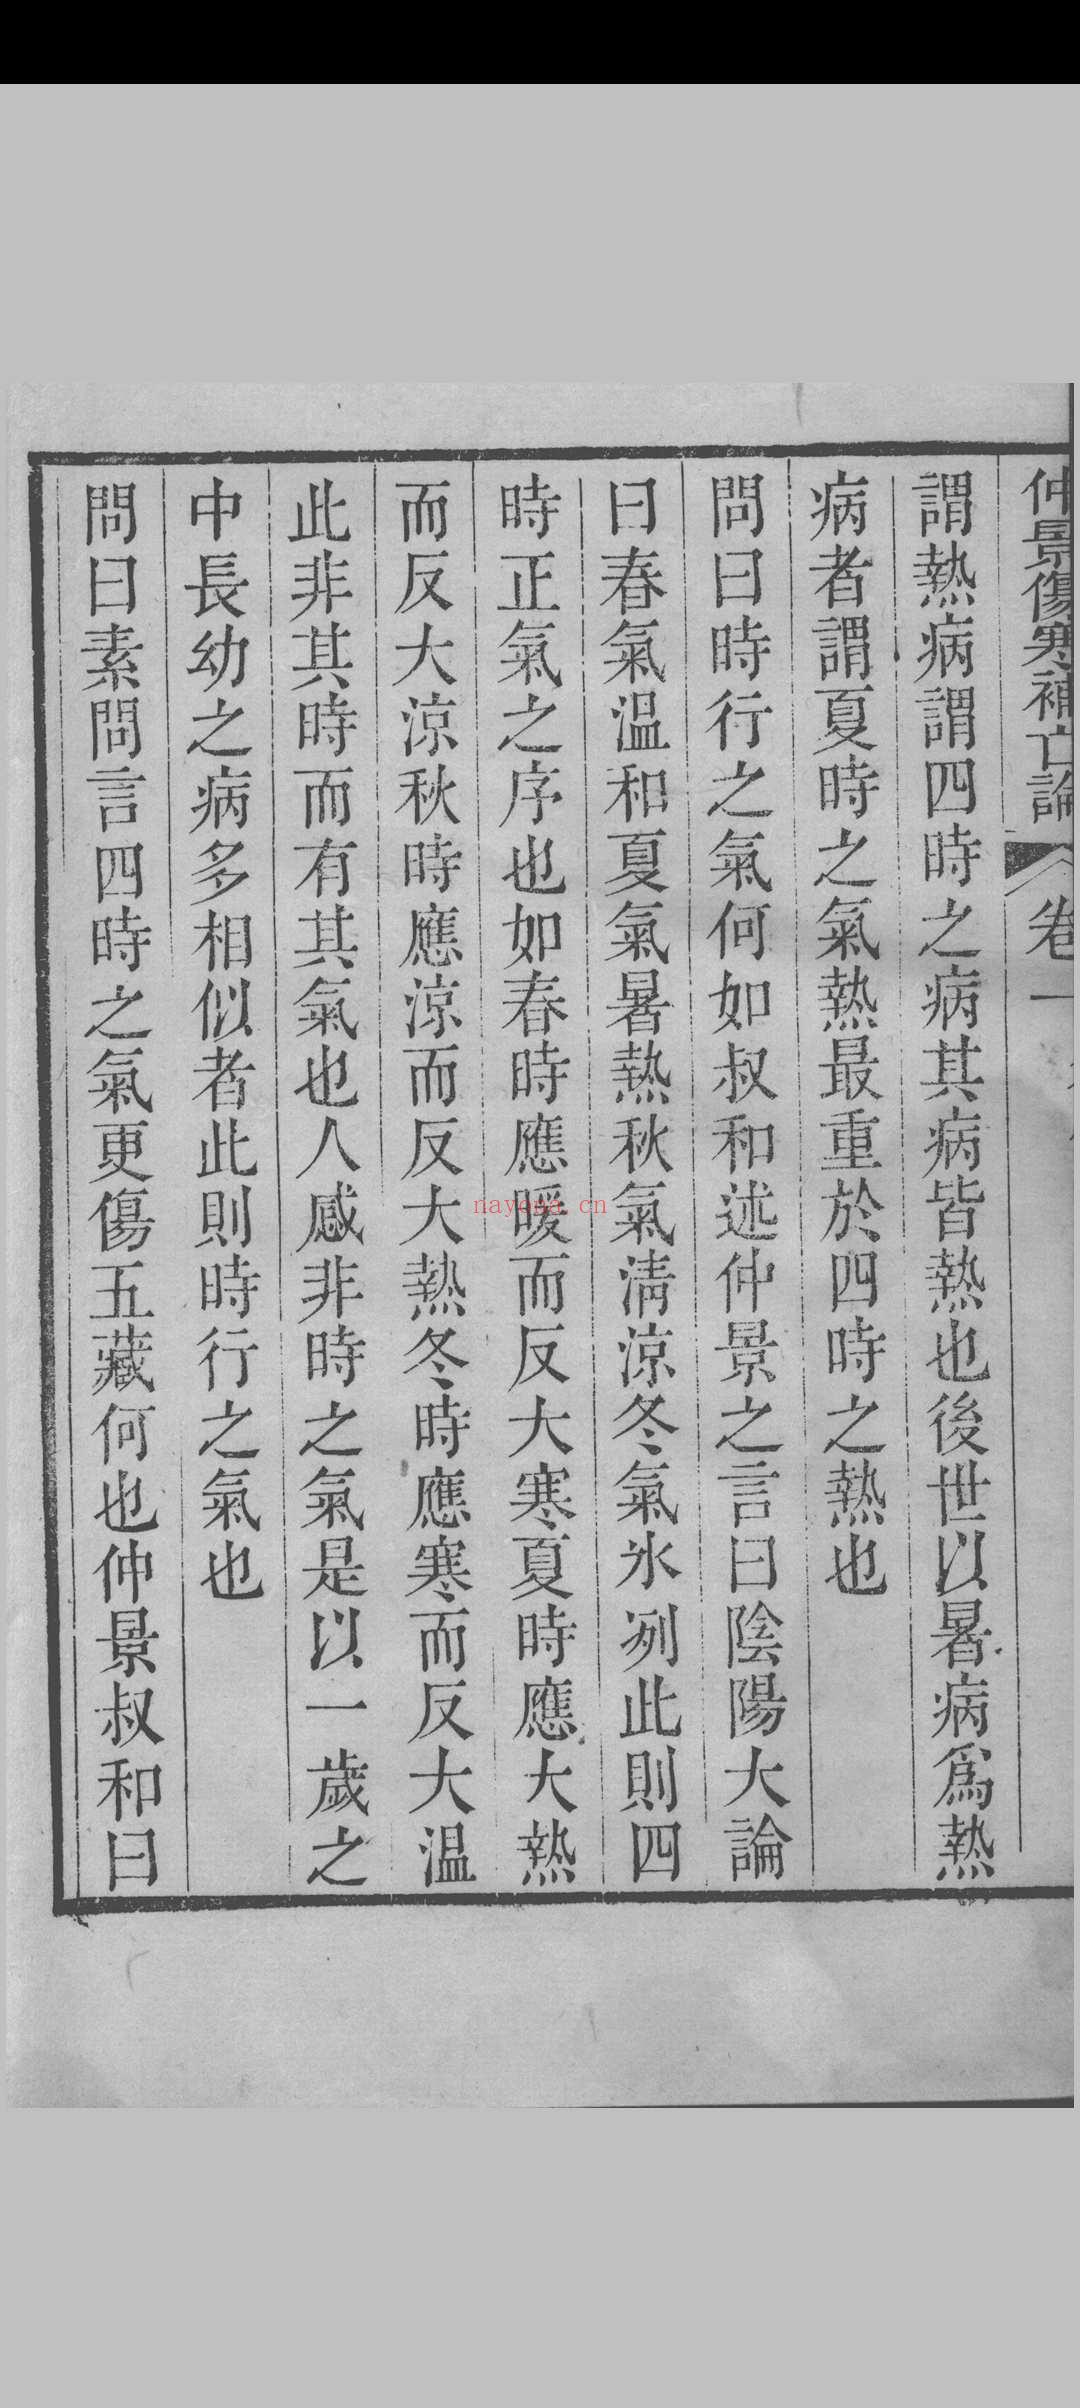 仲景傷寒補亡論 卷一
謂熱病謂四時之病其病皆熱也後世以暑病爲熱
病者謂夏時之氣熱最重於四時之熱也
問曰時行之氣何如叔和述仲景之言曰陰陽大論
曰春氣温和夏氣暑熱秋氣淸涼冬氣氷冽此則四
時正氣之序也如春時應暖而反大寒夏時應大熱
而反大涼秋時應涼而反大熱冬時應寒而反大温
此非其時而有其氣也人感非時之氣是以一歲之
中長幼之病多相似者此則時行之氣也
問曰素問言四時之氣更傷五藏何也仲景叔和曰
nayona.cn